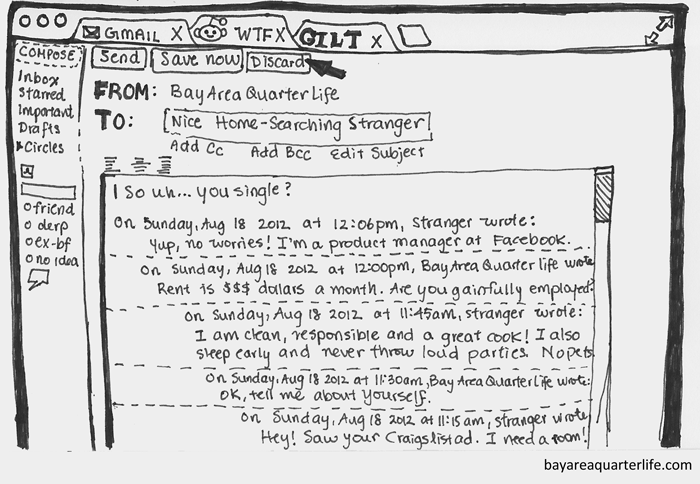 GMAIL X WTF X GILT X
COMPOSE
Send Save now Discard
Inbox
Starred
Important
Drafts
Circles
friend
derp
ex-bf
no idea
FROM: BayAreaQuarterLife
TO: Nice Home-Searching Stranger
Add Cc Add Bcc Edit Subject
So uh... you single?
On Sunday, Aug 18 2012 at 12:06pm, Stranger wrote:
Yup, no worries! I'm a product manager at Facebook.
On Sunday, Aug 18 2012 at 12:00pm, BayAreaQuarterlife wrote
Rent is $$$ dollars a month. Are you gainfully employed?
On Sunday, Aug 18 2012 at 11:45am, stranger wrote:
I am clean, responsible and a great cook! I also
sleep early and never throw loud parties. No pets
On Sunday, Aug 18 2012 at 11:30am, BayAreaQuarterLife wrote:
OK, tell me about yourself.
On Sunday, Aug 18 2012 at 11:15am, stranger wrote
Hey! Saw your Craigslist ad. I need a room!
bayareaquarterlife.com